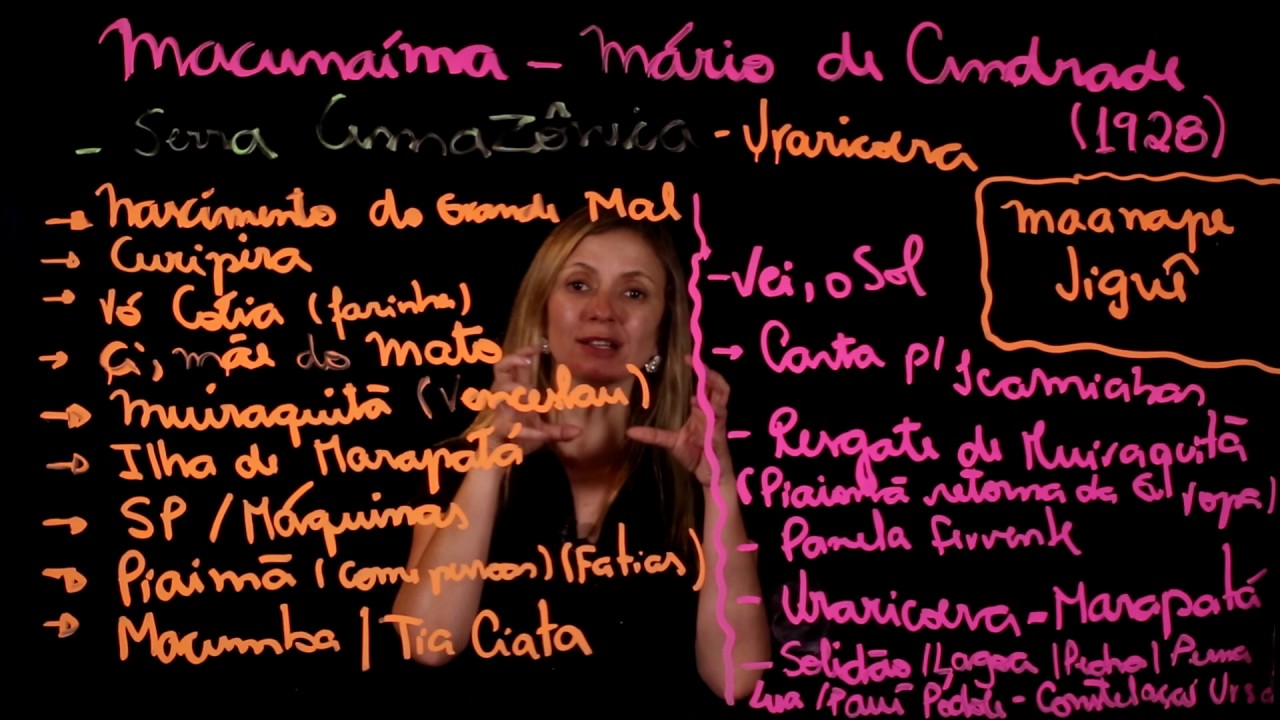 Macunaíma – Mário de Andrade
(1928)
- Serra Amazônica - Uraricoera
→ Nascimento do Grande Mal
→ Curipira
→ Vó Cotia (farinha)
→ Ci, mãe do Mato
→ Muiraquitã (Venceslau)
→ Ilha de Marapatá
→ SP / Máquinas
→ Piaimã (come pessoas) (Fatias)
→ Macumba / Tia Ciata
maanape
Jiguê
- Vei, o Sol
→ Carta p/ Icamiabas
- Resgate de Muiraquitã
(Piaimã retorna da Europa)
- Panela fervente
- Uraricoera - Marapatá
- Solidão / Lagoa / Pedro / Perna
/ Pauí Pódole - Constelação Ursa